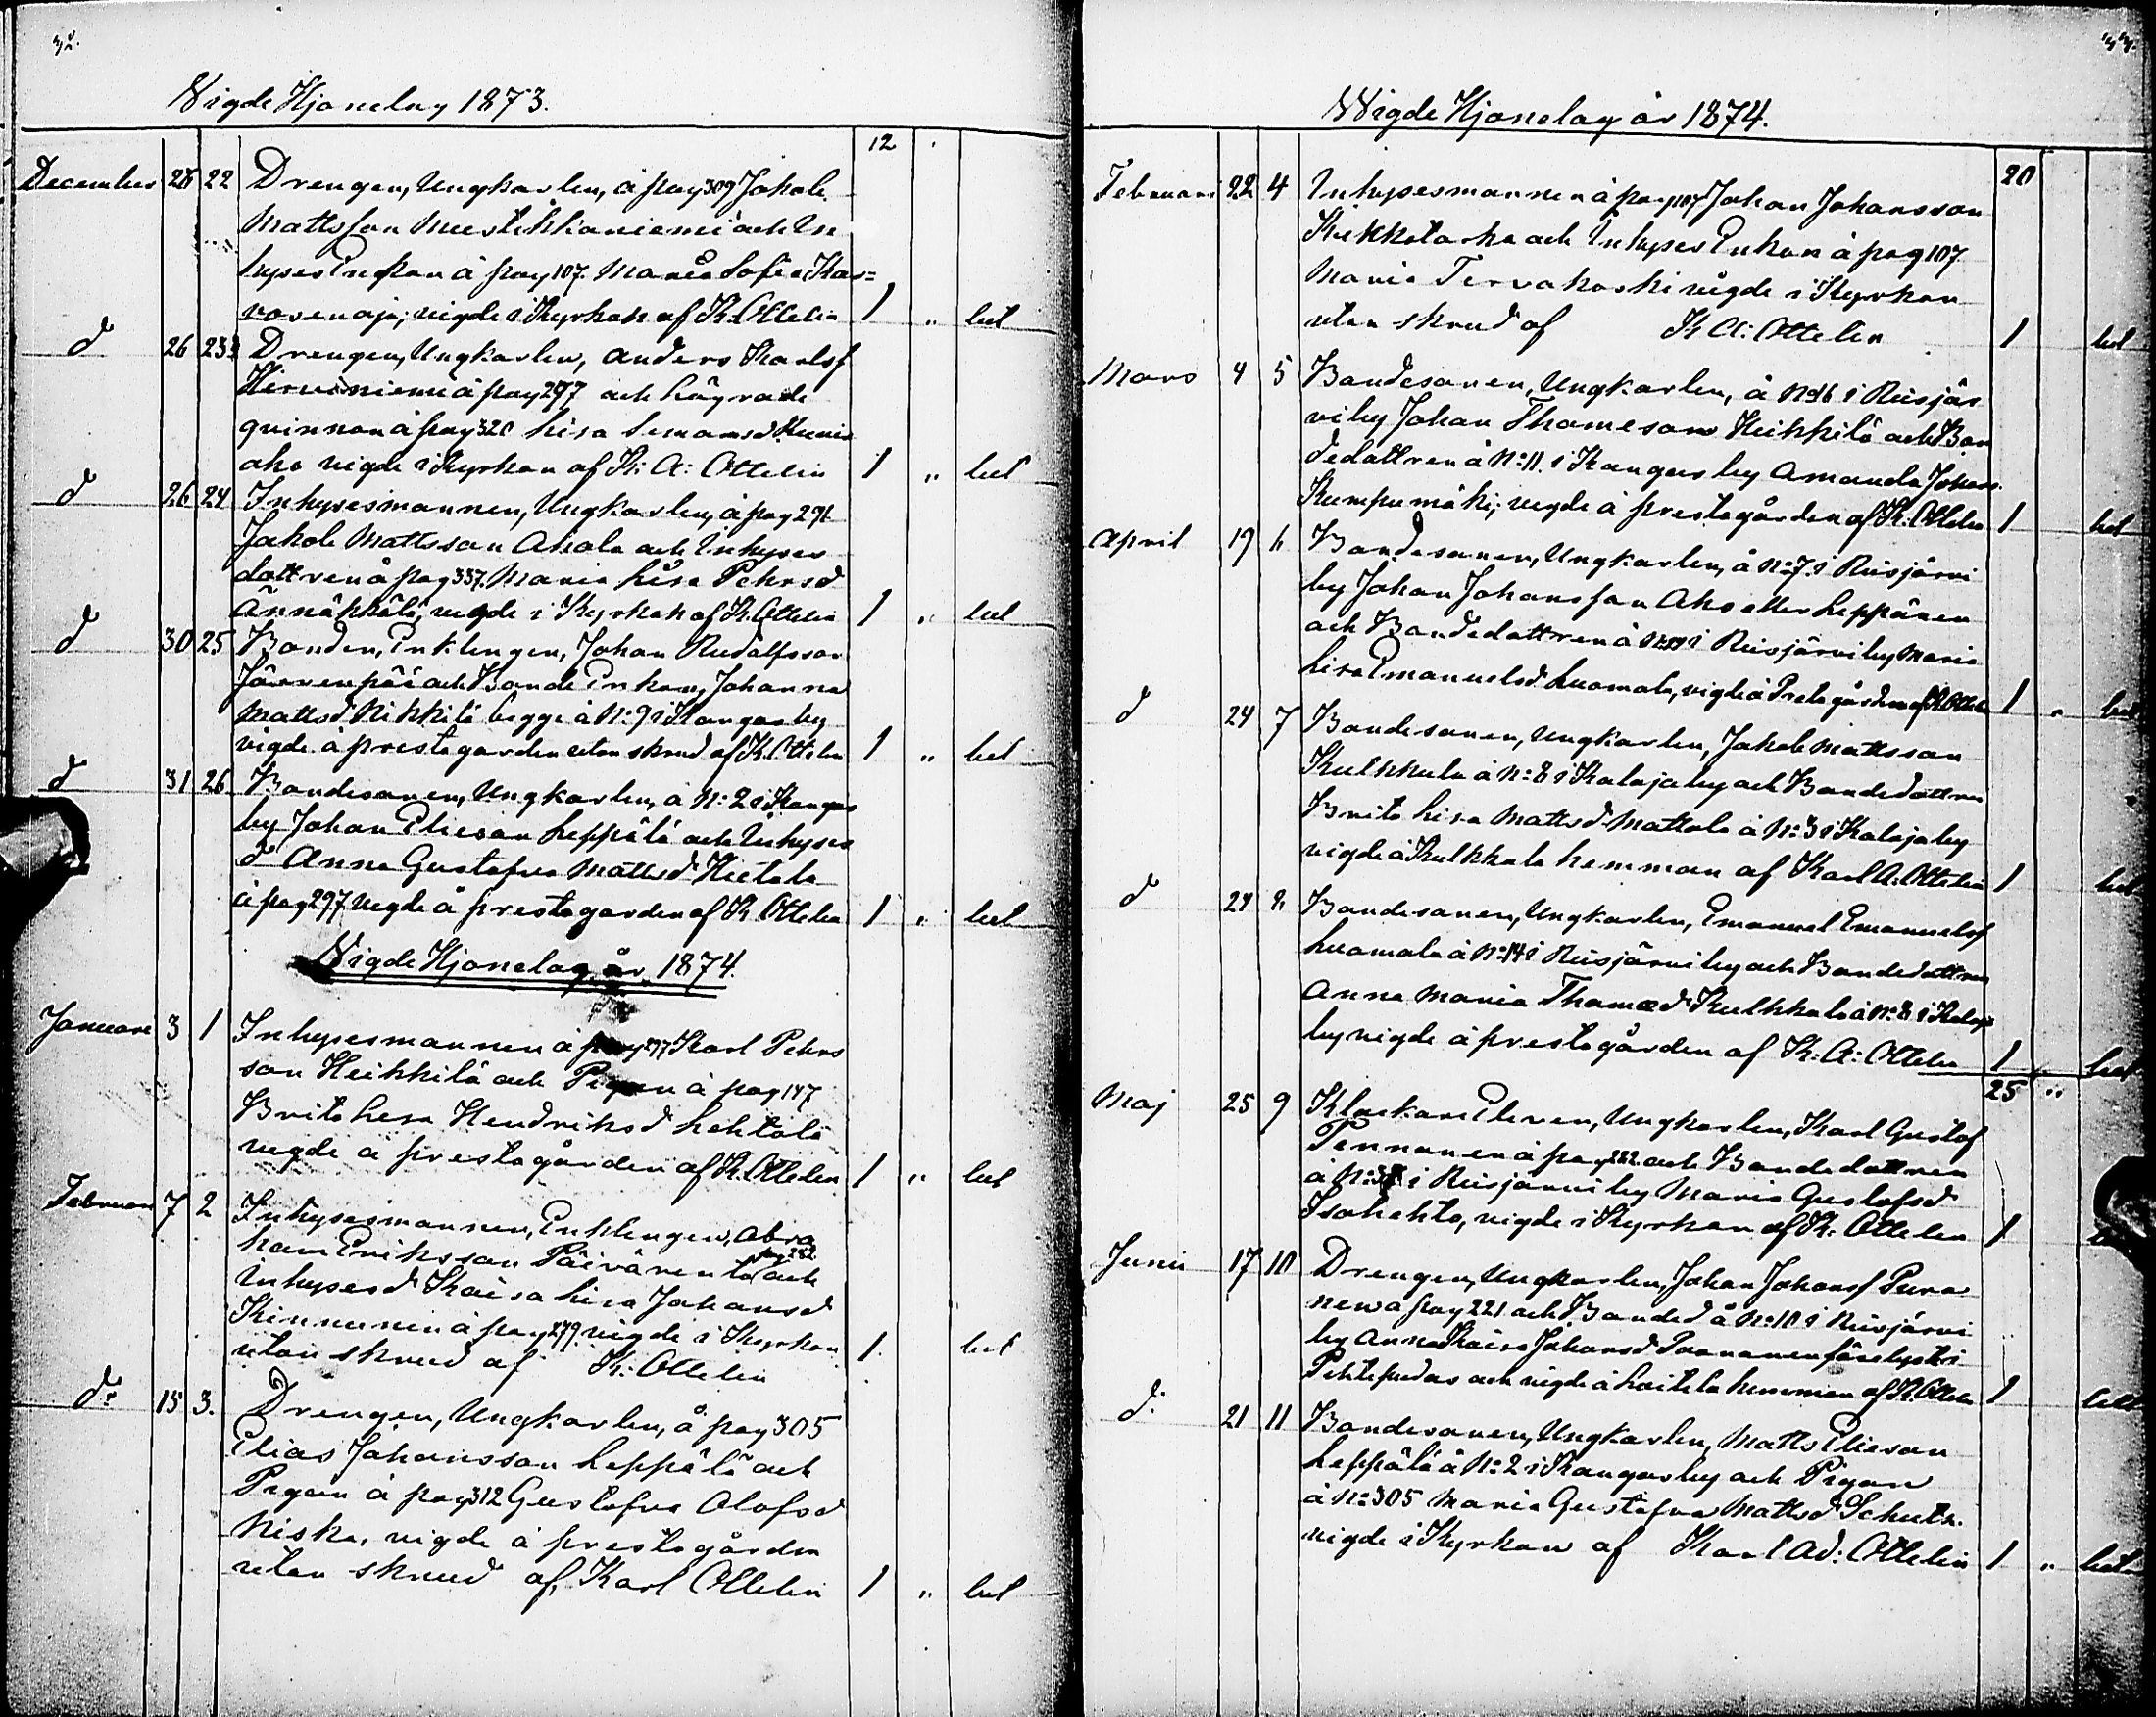 32.
Vigde Hjonelag 1873.
12
December 26 22 Drengen, Ungkarlen, å pag 309 Jakob
Mattsson Mustikkaniemi och In
hyses Enkan å pag 107. Maria Sofia Kar=
vosenoja; vigde i Kyrkan af K. Ottelin 1 " bet
d 26 23 Drengen, Ungkarlen, Anders Karlsf
Hirviniemi å pag 297 och Lägrade
qvinnan å pag 320 Lisa Simonsd Kunis
aho vigde i Kyrkan af K: A: Ottelin 1 " bet
d 26 24 Inhysesmannen, Ungkarlen, å pag 291
Jakob Mattsson Ahola och Inhyses
dottren å pag 337. Maria Lisa Pehrsd
Ännäkkälä; vigde i Kyrkan af K. Ottelin 1 " bet
d 30 25 Bonden, Enklingen, Johan Rudolfsson
Järvenpää och Bonde Enkan, Johanna
Mattsd Nikkilä begge å N:o 9 i Kangas by
vigde å prestegarden utan skrud af K. Ottelin 1 " bet
d 31 26 Bondesonen, Ungkarlen, å N:o 2 i Kangas
by Johan Eliesson Leppälä och Inhyses
d Anna Gustafva Mattsd Hietala
å pag 297 vigde å prestegarden af K. Ottelin 1 " bet
Vigde Hjonelag år 1874.
Januari 3 1 Inhysesmannen å pag 297 Karl Pehrs
son Heikkilä och Pigan å pag 147
Brita Lisa Hendriksd Lehtola
vigde å prestegården af K. Ottelin 1 " bet
Februari 7 2 Inhysesmannen, Enklingen, Abra
ham Eriksson Päivärenta pag 282 och
inhysesd Kaisa Lisa Johansd
Kinnunen å pag 279 vigde i Kyrkan
utan skrud af K: Ottelin 1 bet
d:o 15 3. Drengen, Ungkarlen, å pag 305
Elias Johansson Leppälä och
Pigan å pag 312 Gustafva Olofsd
Niska, vigde å prestegården
utan skrud af Karl Ottelin 1 " bet
33.
Vigde Hjonelag år 1874.
20
Februari 22 4 Inhysesmannen å pag 107 Johan Johansson
Kukkotarha och Inhyses Enkan å pag 107
Maria Tervakoski vigde i Kyrkan
utan skrud af K A: Ottelin 1 bet
Mars 4 5 Bondesonen, Ungkarlen, å N:o 16 i Reisjär
vi by Johan Thomeson Heikkilä och Bon
dedottren å N:o 11 i Kangas by Amanda Johans
Kumpumäki; vigde å prestegården af K. Ottelin 1 bet
April 19 6 Bondesonen, Ungkarlen, å N:o 7 i Reisjärvi
by Johan Johansson Aho eller Leppänen
och Bondedottren å i Reisjärvi by Maria
Lisa Emanuelsd Luomala, vigde å Prestegården af K. Ottelin 1 " bet
d 24 7 Bondesonen, Ungkarlen, Jakob Mattsson
Kulkkula å N:o 8 i Kalaja by och Bondedottren
Brita Lisa Mattsd Mattala å N:o 3 i Kalaja by
vigde å Kulkkala hemman af Karl A. Ottelin 1 bet
d 24 8 Bondesonen, Ungkarlen, Emanuel Emanuelsf
Luomala å N:o 14 i Reisjärvi by och Bondedottren
Anna Maria Thomæd Kulkkala å N:o 8 i Kalaja
by vigde å prestegården af K: A: Ottelin 1 bet
25 "
Maj 25 9 Klockare Eleven, Ungkarlen, Karl Gustaf
Pennanen å pag 282 och Bondedottren
å i Reisjärvi by Maria Gustafsd
Isokehto, vigde i Kyrkan af K. Ottelin 1
Junii 17 10 Drengen, Ungkarlen, Johan Johansf Pura
nen å pag 221 och Bonded å N:o 10 i Reisjärvi
by Anna Kaisa Johansd Paananen förelyst i
Pihtipudas och vigde å Loitela hemman af K. Ottelin 1 bet
d:o 21 11 Bondesonen, Ungkarlen, Matts Elieson
Leppälä å N:o 2 i Kangas by och Pigan
å N:o 305 Maria Gustafva Mattsd Schutz.
vigde i Kyrkan af Karl Ad: Ottelin 1 " bet